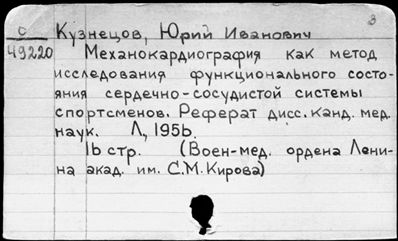 3
О Кузнецов, Юрий Иванович
49220 Механокардиография как метод
исследования функционального состо-
яния сердечно-сосудистой системы
спортсменов. Реферат дисс. канд. мед.
наук. Л., 1956.
16 стр. (Воен-мед. ордена Лени-
на акад. им. С.М.Кирова)